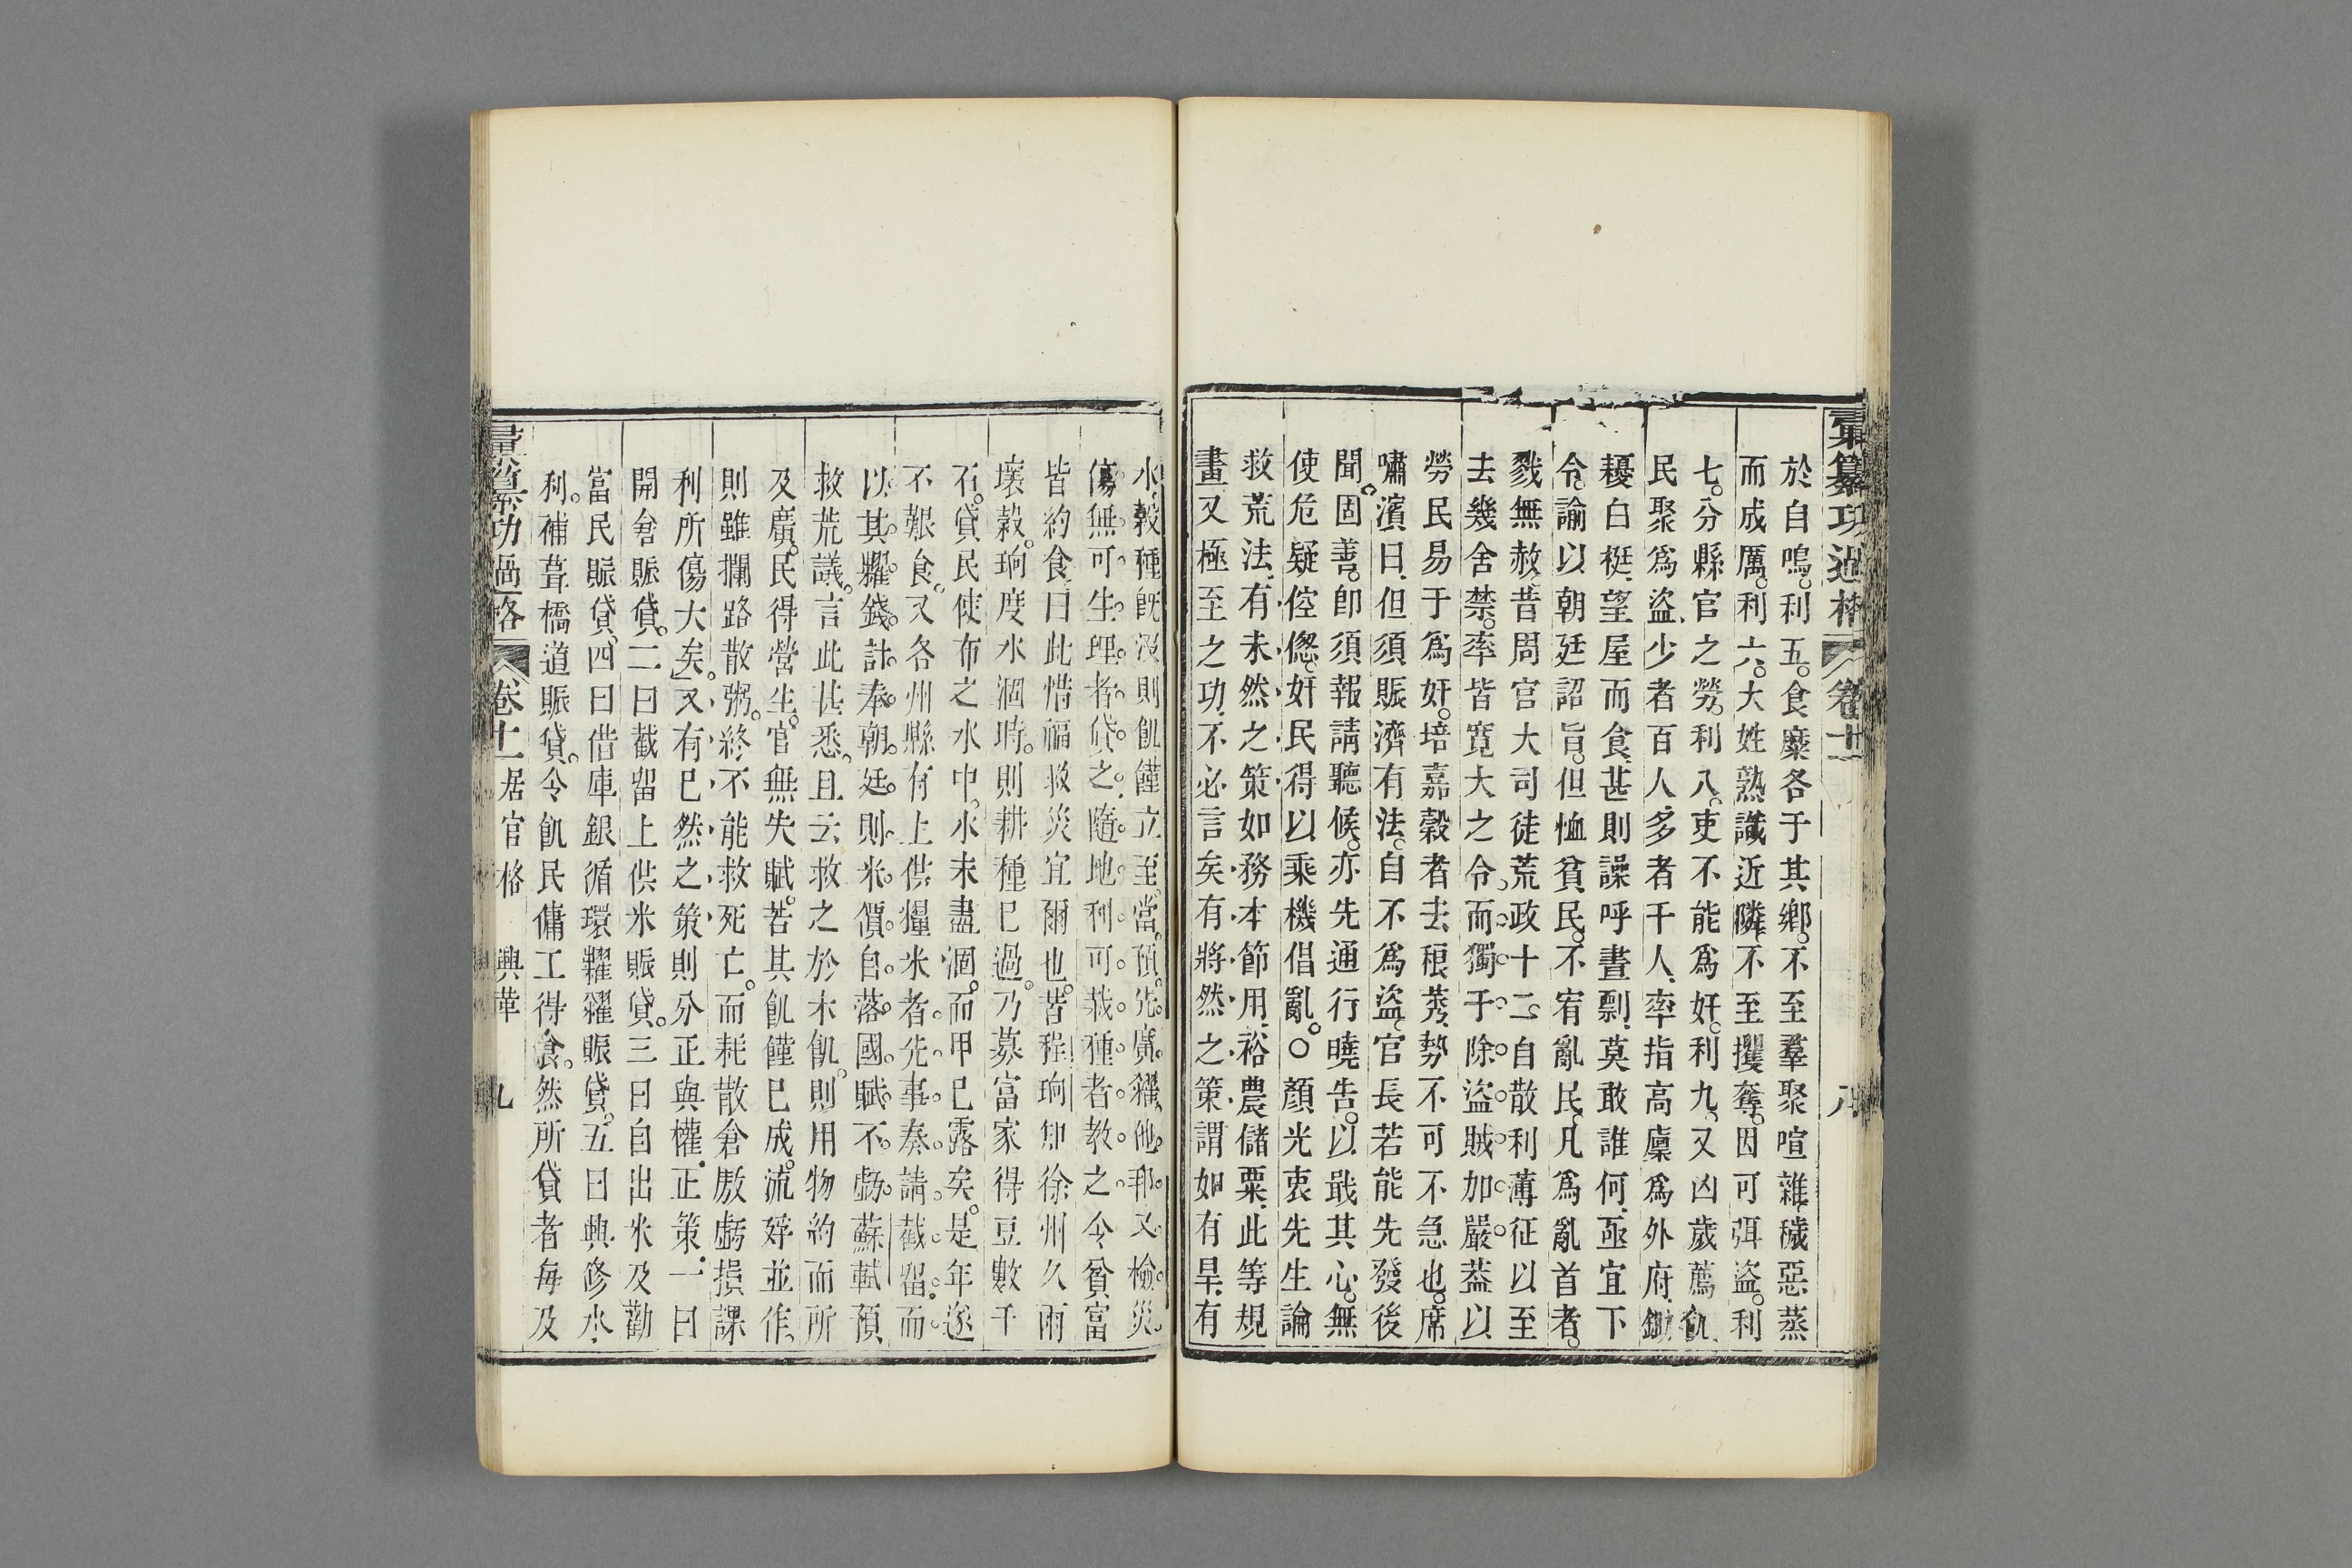 彙纂功過格 卷十一 八
於自鳴利五食糜各于其鄉不至羣聚喧雜穢惡蒸
而成厲利六大姓熟識近隣不至攫奪因可弭盜利
七分縣官之勞利八吏不能爲奸利九又凶歲薦飢
民聚爲盜少者百人多者千人率指高廩爲外府鋤
耰白梃望屋而食甚則譟呼晝剽莫敢誰何亟宜下
令諭以朝廷詔旨但恤貧民不宥亂民凡爲亂首者
戮無赦昔周官大司徒荒政十二自散利薄征以至
去幾舍禁率皆寬大之令而獨于除盜賊加嚴葢以
勞民易于爲奸培嘉穀者去稂莠勢不可不急也席
嘯濱曰但須賑濟有法自不爲盜官長若能先發後
聞固善卽須報請聽候亦先通行曉告以戢其心無
使危疑倥偬奸民得以乘機倡亂〇顏光衷先生論
救荒法有未然之策如務本節用裕農儲粟此等規
畫又極至之功不必言矣有將然之策謂如有旱有
水穀種旣沒則飢饉立至當預先廣糴他邦又檢災
傷無可生理者貸之隨地利可栽種者教之令貧富
皆約食曰此惜福救災宜爾也昔程珦知徐州久雨
壞穀珦度水涸時則耕種已過乃募富家得豆數千
石貸民使布之水中水未盡涸而甲已露矣是年遂
不艱食又各州縣有上供糧米者先事奏請截留而
以其糶錢計奉朝廷則米價自落國賦不虧蘇軾預
救荒議言此甚悉且云救之於未飢則用物約而所
及廣民得營生官無失賦若其飢饉已成流殍並作
則雖攔路散粥終不能救死亡而耗散倉廒虧損課
利所傷大矣又有已然之策則分正與權正策一曰
開倉賑貸二曰截留上供米賑貸三曰自出米及勸
富民賑貸四曰借庫銀循環糶糴賑貸五曰興修水
利補葺橋道賑貸令飢民傭工得食然所貸者每及
彙纂功過格 卷十一 居官格 興華 九